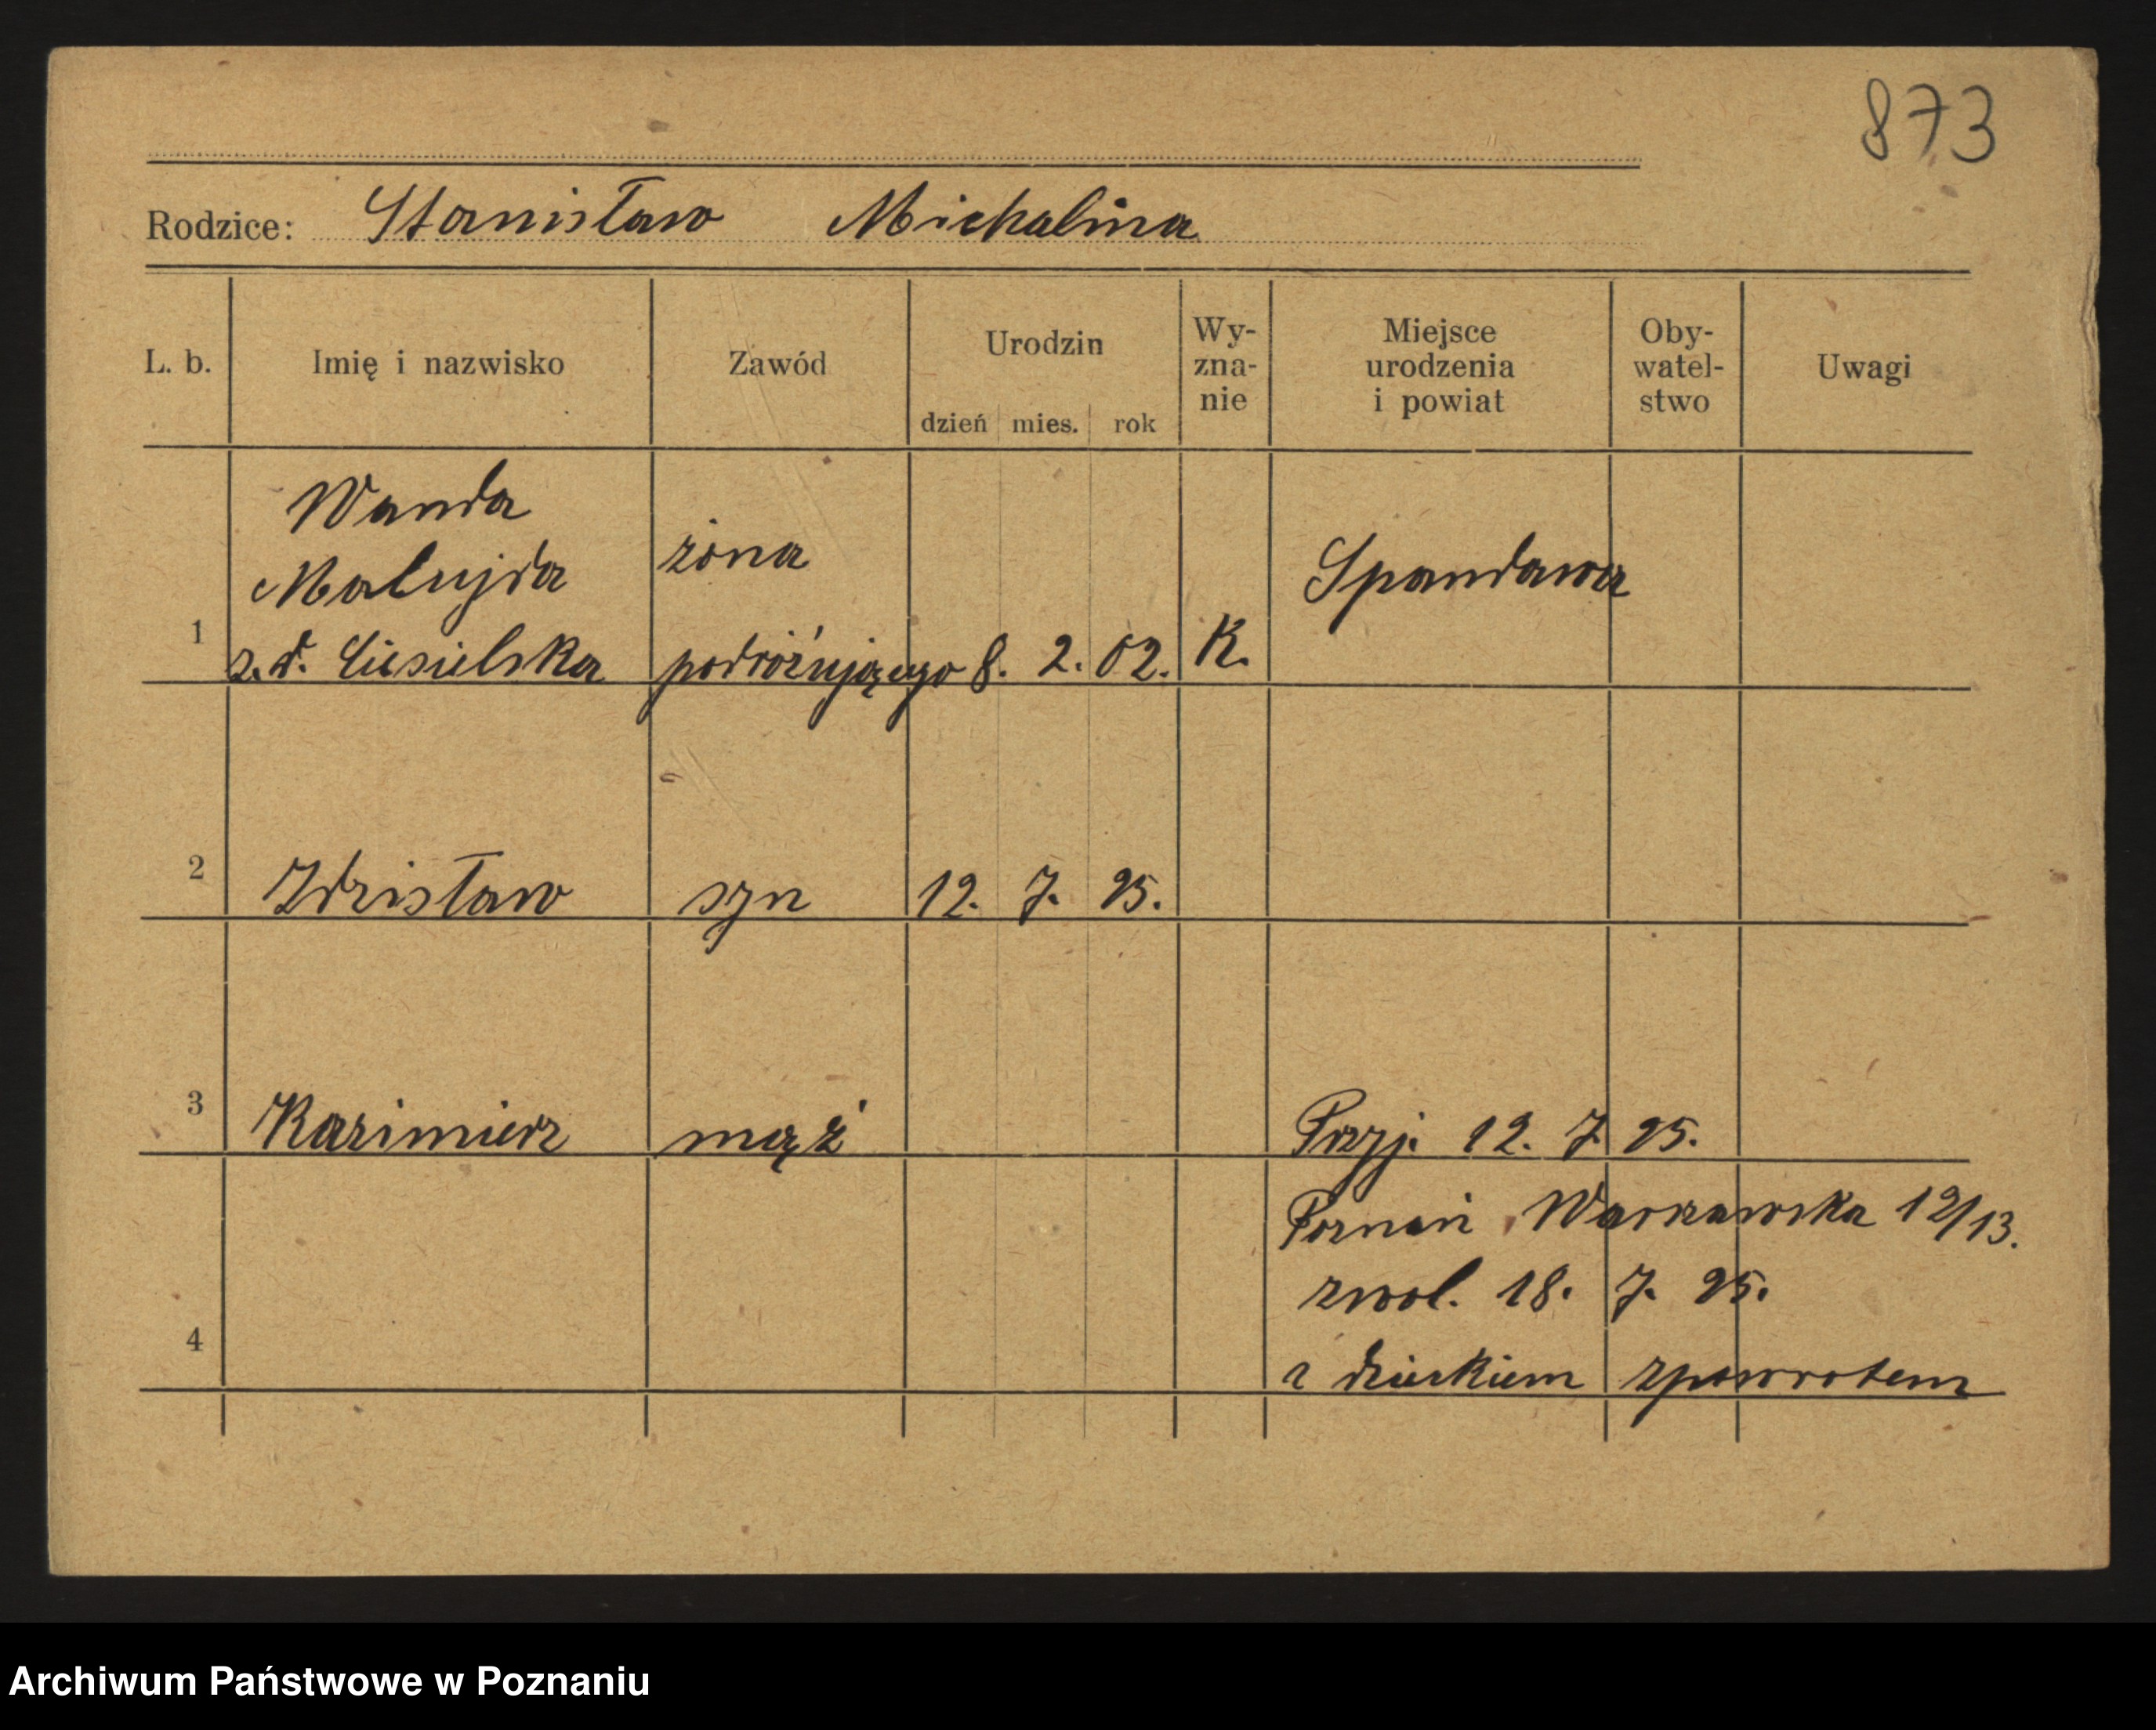 873
Rodzice: Stanisław Michalina
L. b. Imię i nazwisko Zawód Urodzin dzień mies. rok Wy-zna-nie Miejsce urodzenia i powiat Oby-watel-stwo Uwagi
Wanda
Matujda żona Spandawa
1 z. d. Ciesielska podróżującego 8. 2. 02. K.
2 Zdzisław syn 12. 7. 25.
3 Kazimierz mąż Przyj. 12. 7. 25.
Poznań, Warszawska 12/13.
zwol. 18. 7. 25.
4 z dzieckiem zpowrotem
Archiwum Państwowe w Poznaniu